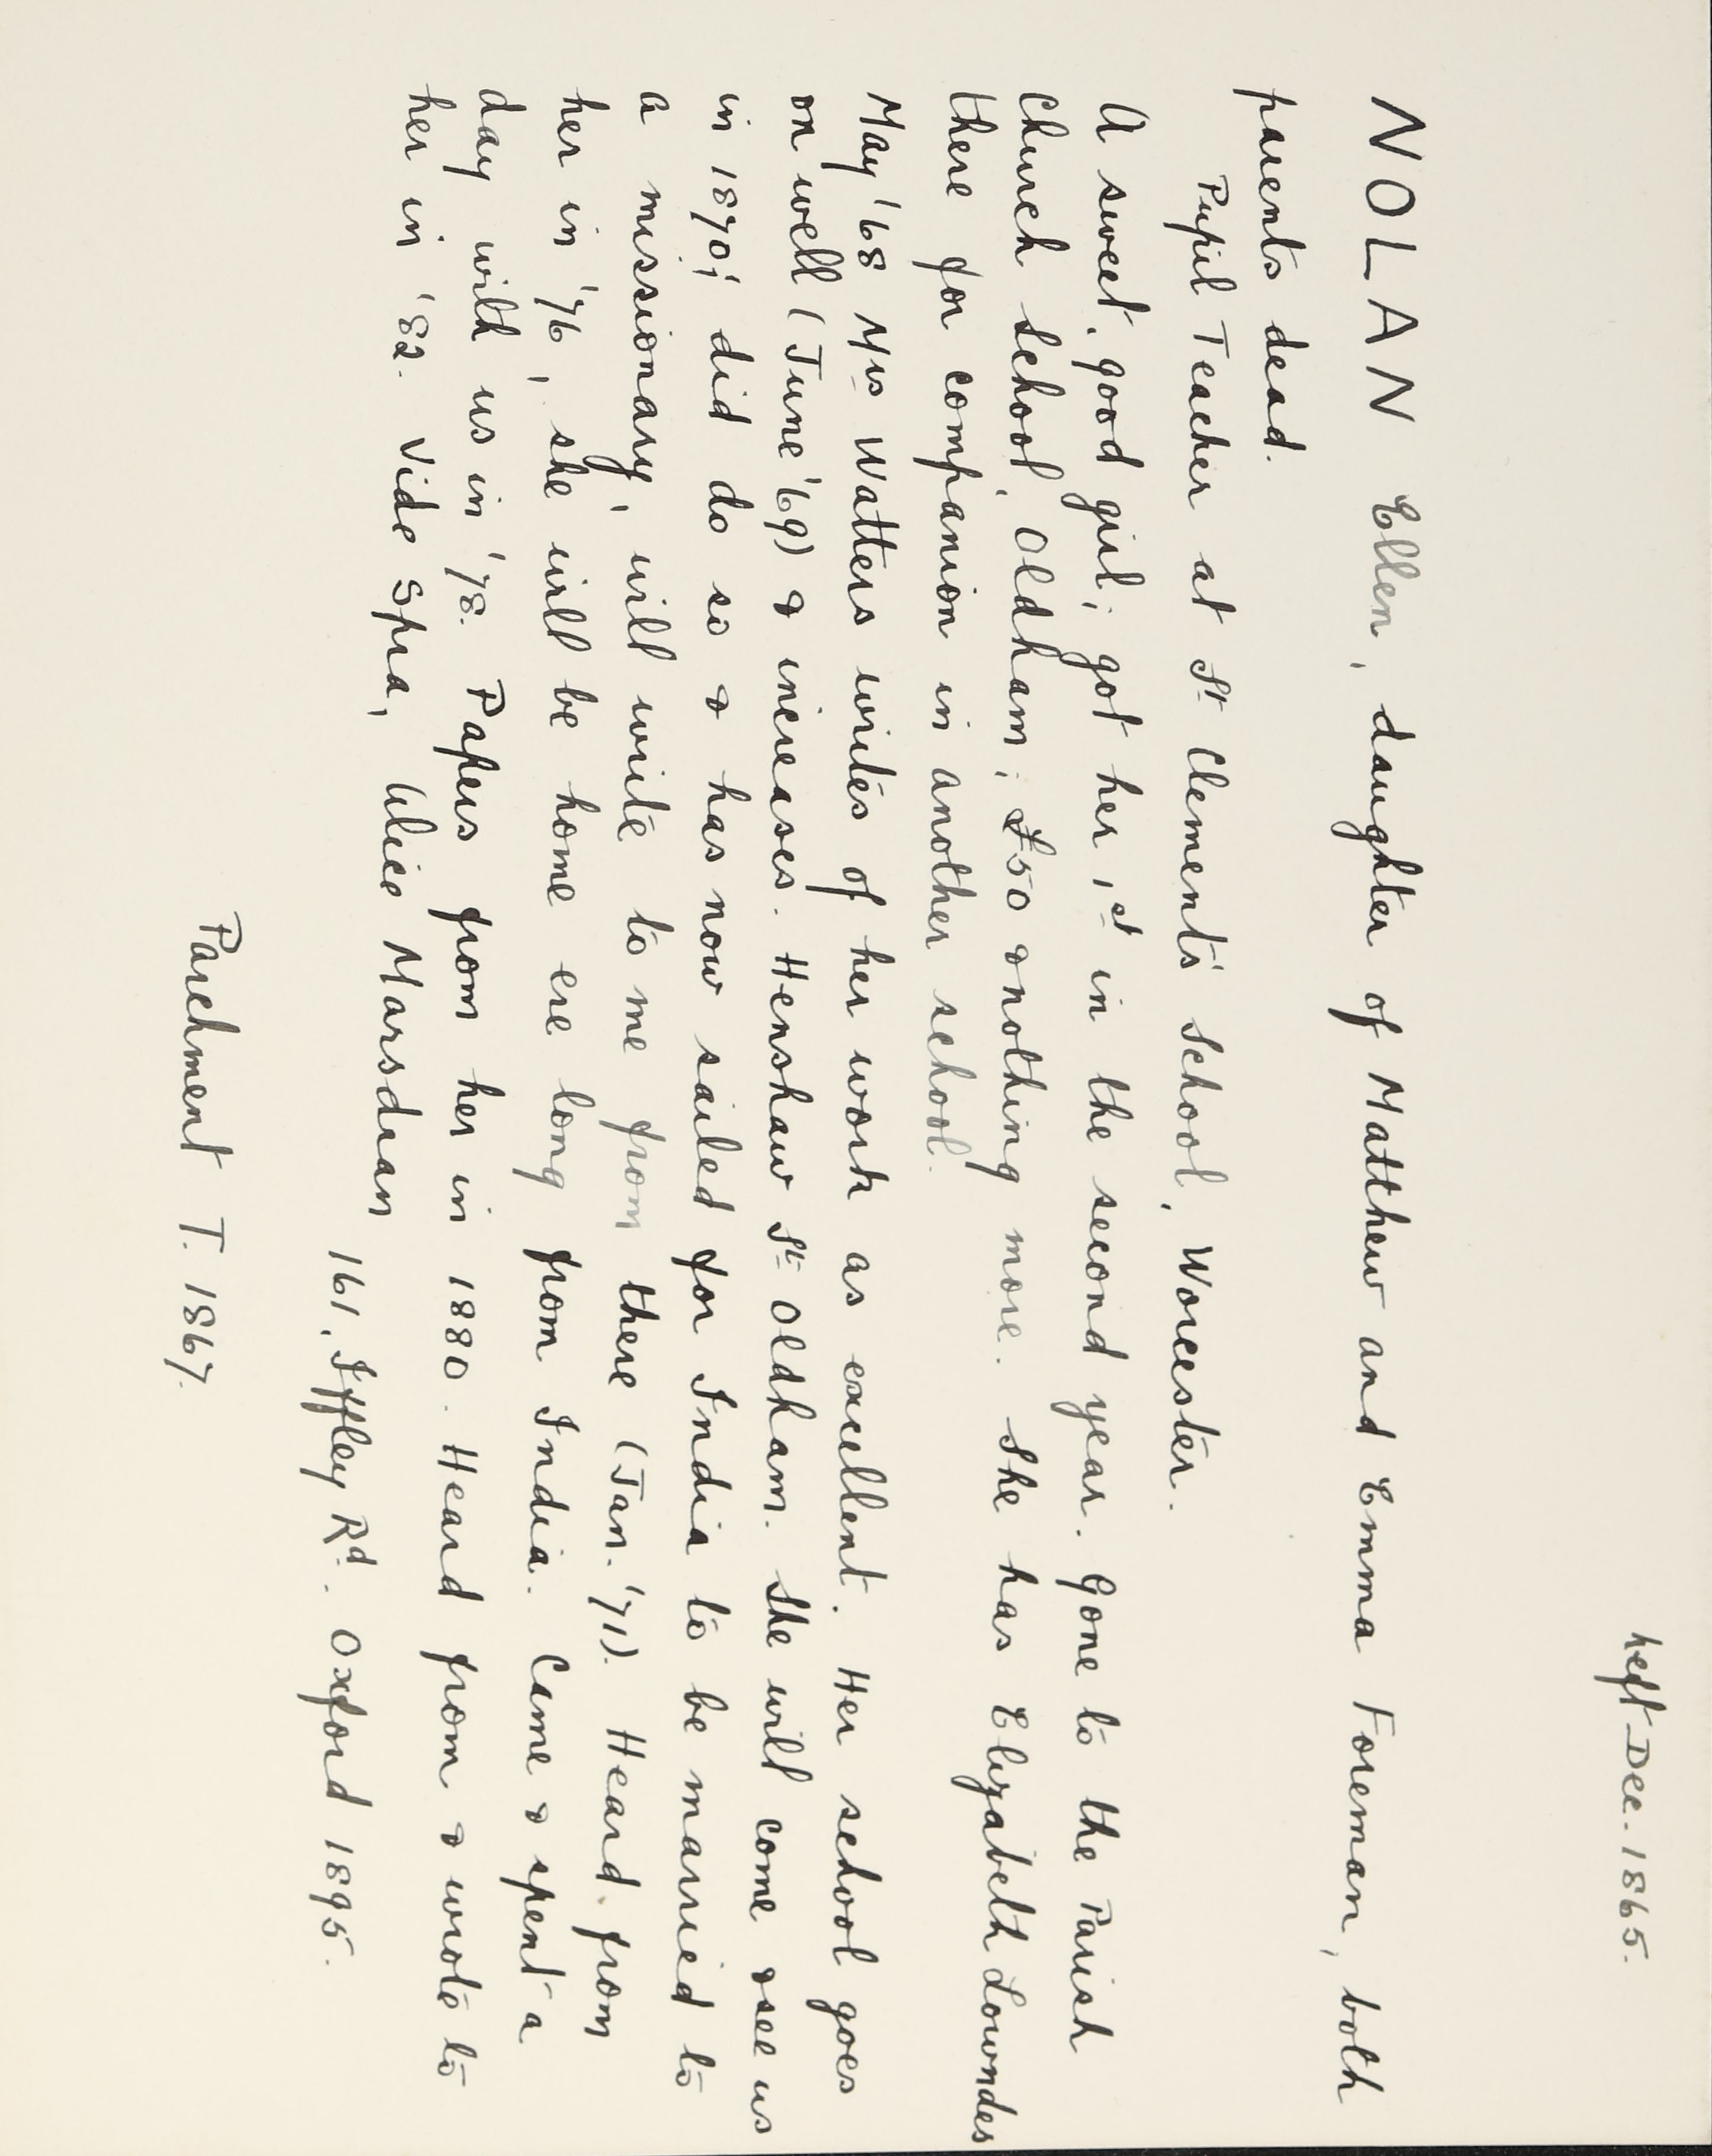 Left Dec. 1865.
NOLAN Ellen, daughter of Matthew and Emma Foreman, both
parents dead.
Pupil Teacher at St Clement's School, Worcester.
A sweet, good girl; got her 1st in the second year. Gone to the Parish
Church School, Oldham; £50 & nothing more. She has Elizabeth Lowndes
there for companion in another school.
May '68 Mrs Watters writes of her work as excellent. Her school goes
on well (June '69) & increases. Henshaw St Oldham. She will come & see us
in 1870; did do so & has now sailed for India to be married to
a missionary; will write to me from there (Jan. '71). Heard from
her in '76, she will be home ere long from India. Came & spent a
day with us in '78. Papers from her in 1880. Heard from & wrote to
her in '82. Vide Spra, Alice Marsdean
161, Iffley Rd. Oxford 1895.
Parchment T. 1867.